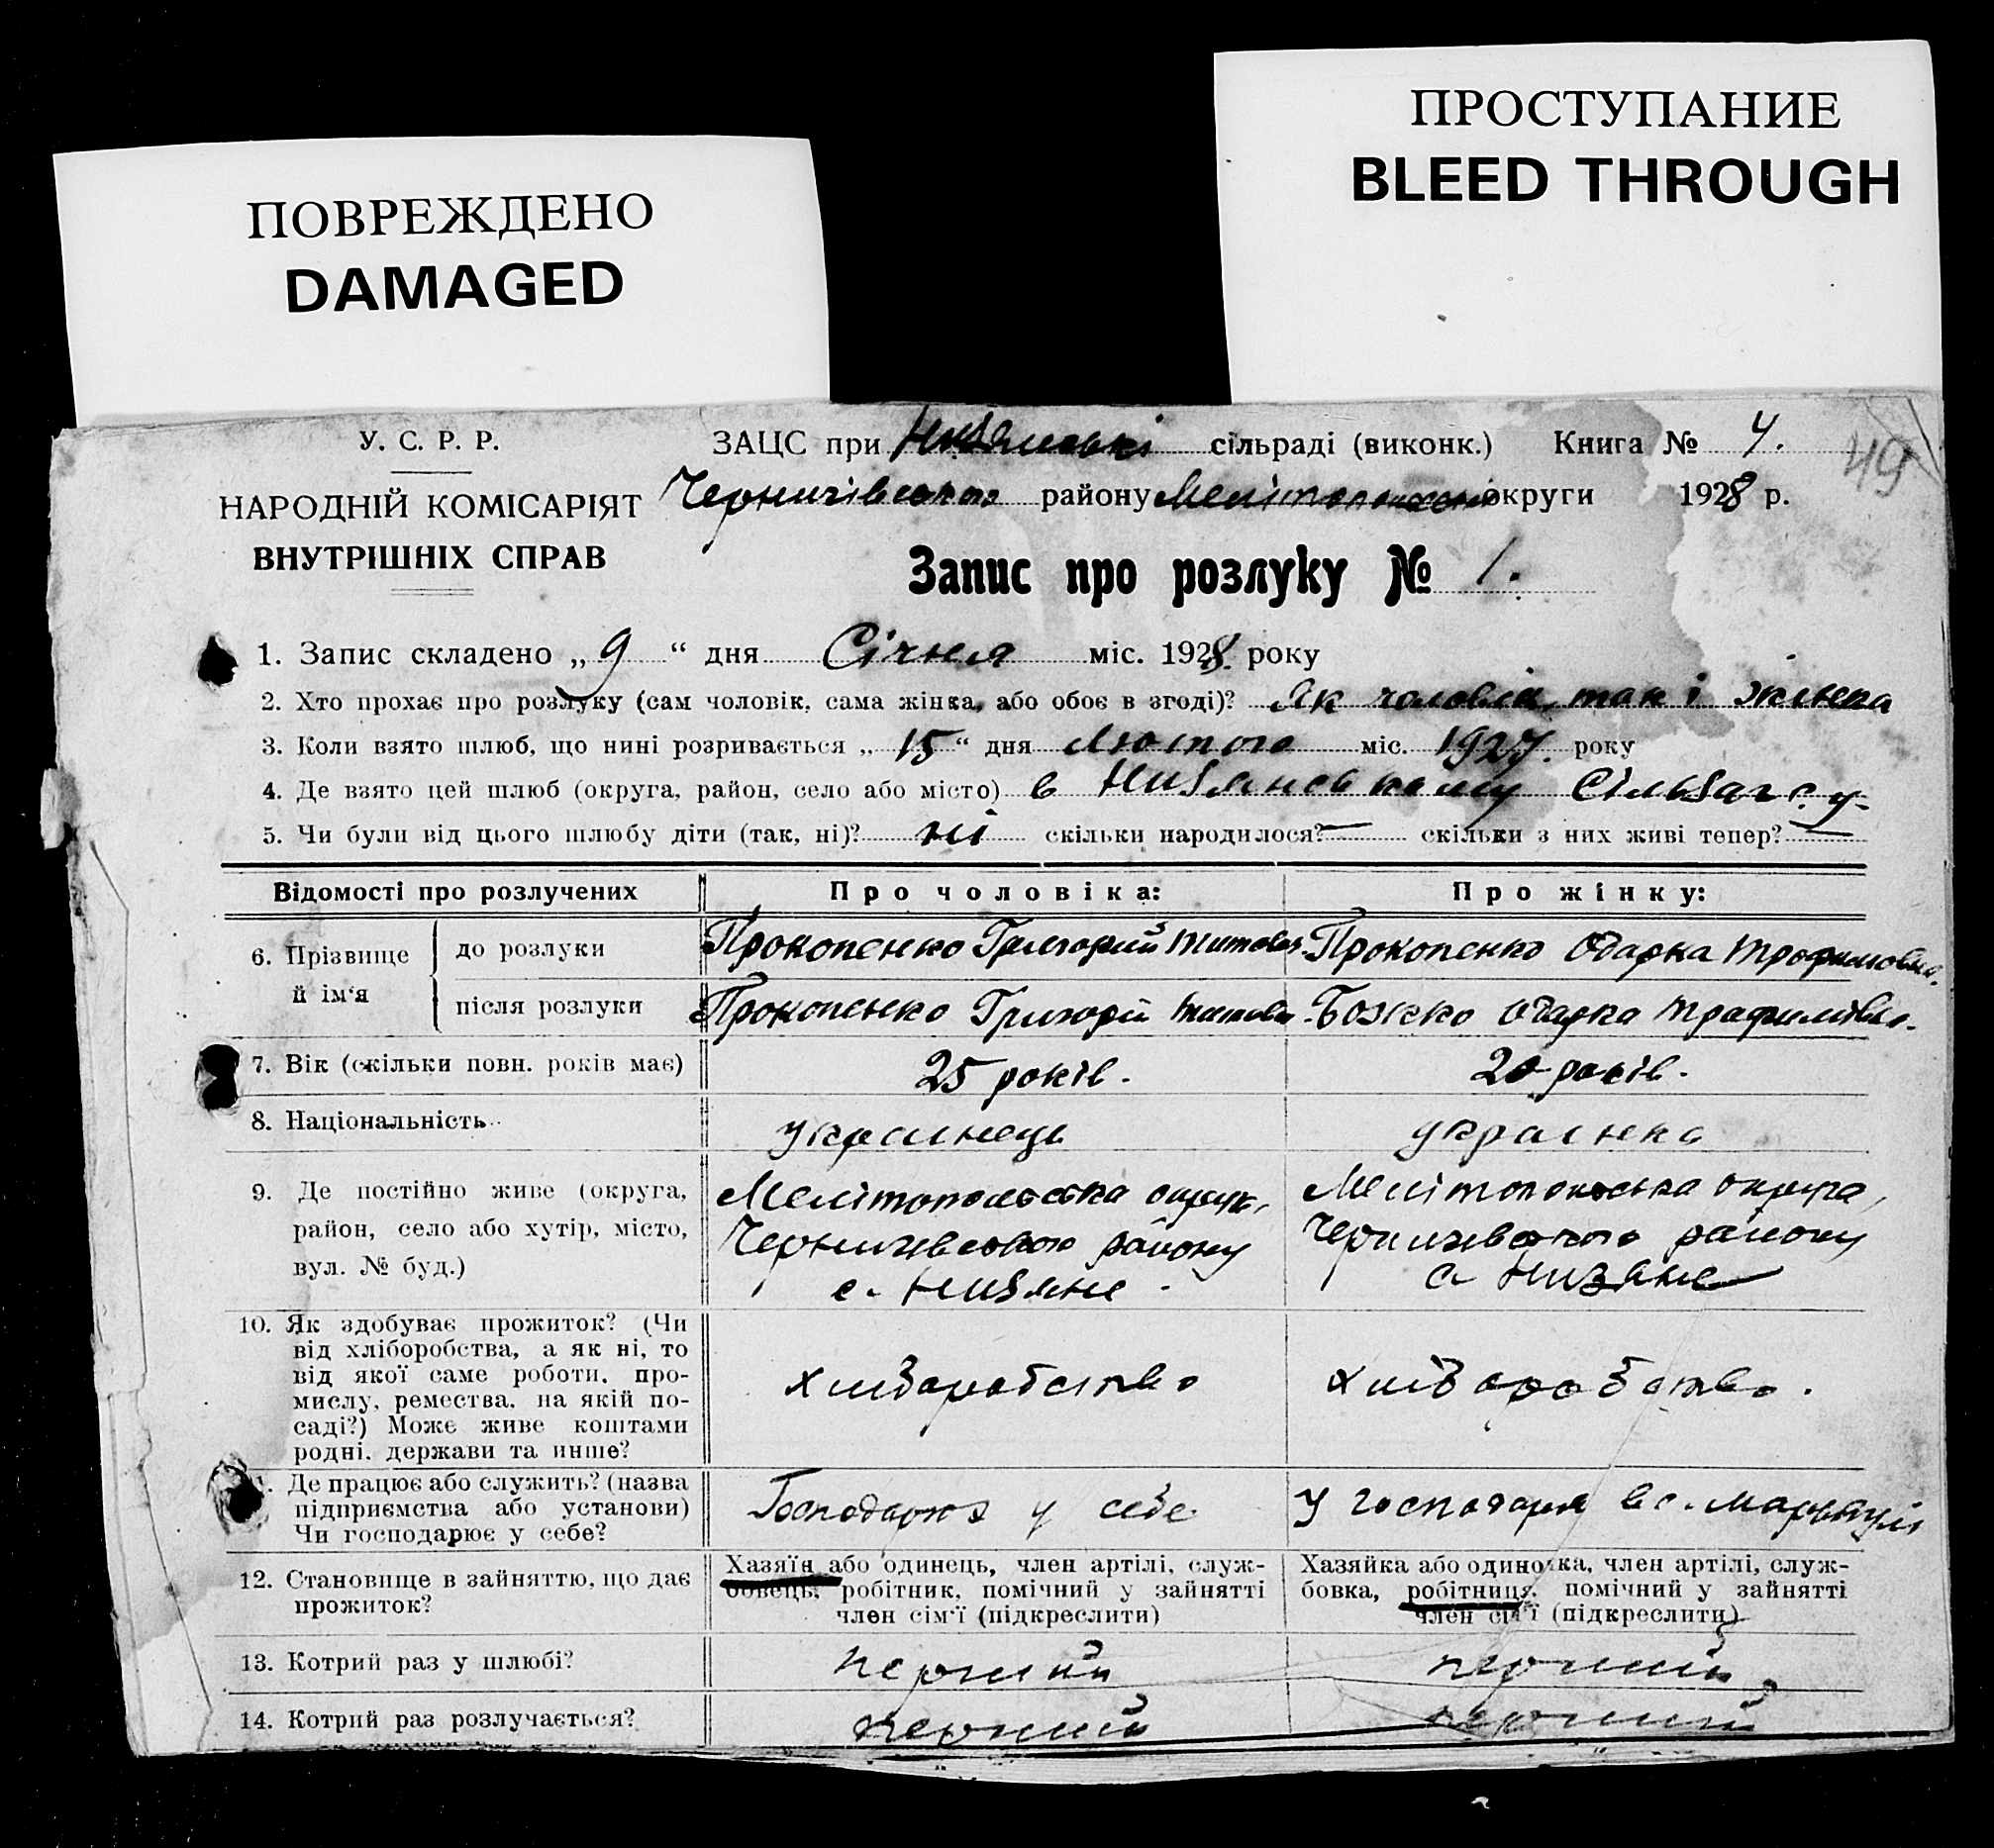 ПОВРЕЖДЕНО
DAMAGED
ПРОСТУПАНИЕ
BLEED THROUGH
49
У. С. Р. Р.
НАРОДНІЙ КОМІСАРІЯТ
ВНУТРІШНІХ СПРАВ
ЗАЦС при Низянські сільраді (виконк.) Книга № 4.
Чернигівського району Мелітопольської округи 1928 р.
Запис про розлуку № 1.
1. Запис складено „ 9 “ дня Січня міс. 1928 року
2. Хто прохає про розлуку (сам чоловік, сама жінка, або обоє в згоді)? Як чоловік, так і жінка
3. Коли взято шлюб, що нині розривається „ 15 “ дня Лютого міс. 1927. року
4. Де взято цей шлюб (округа, район, село або місто) в Низянському
5. Чи були від цього шлюбу діти (так, ні)? ні скільки народилося? — скільки з них живі тепер? —
Відомості про розлучених Про чоловіка: Про жінку:
6. Прізвище й ім'я
до розлуки Прокопенко Григорий Титов. Прокопенко Одарка Трофимовна.
після розлуки Прокопенко Григорій Титов. Божко Одарка Трафимівна.
7. Вік (скільки повн. років має) 25 років. 20 років.
8. Національність украинець украінка
9. Де постійно живе (округа, район, село або хутір, місто, вул. № буд.)
Мелітопольська округа,
Чернигівського району
с. Низяне.
Мелітопольська округа,
Чернигівського району
с. Низяне
10. Як здобуває прожиток? (Чи
від хліборобства, а як ні, то
від якої саме роботи, про-
мислу, ремества, на якій по-
саді?) Може живе коштами
родні, держави та инше?
хліборобство хліборобство.
. Де працює або служить? (назва
підприємства або установи)
Чи господарює у себе?
Господарює у себе У господаря в с.
12. Становище в зайняттю, що дає
прожиток?
Хазяїн або одинець, член артілі, служ-
бовець, робітник, помічний у зайнятті
член сім'ї (підкреслити)
Хазяйка або одиночка, член артілі, служ-
бовка, робітниця, помічний у зайнятті
член сім'ї (підкреслити)
13. Котрий раз у шлюбі? перший перший
14. Котрий раз розлучається? перший перший